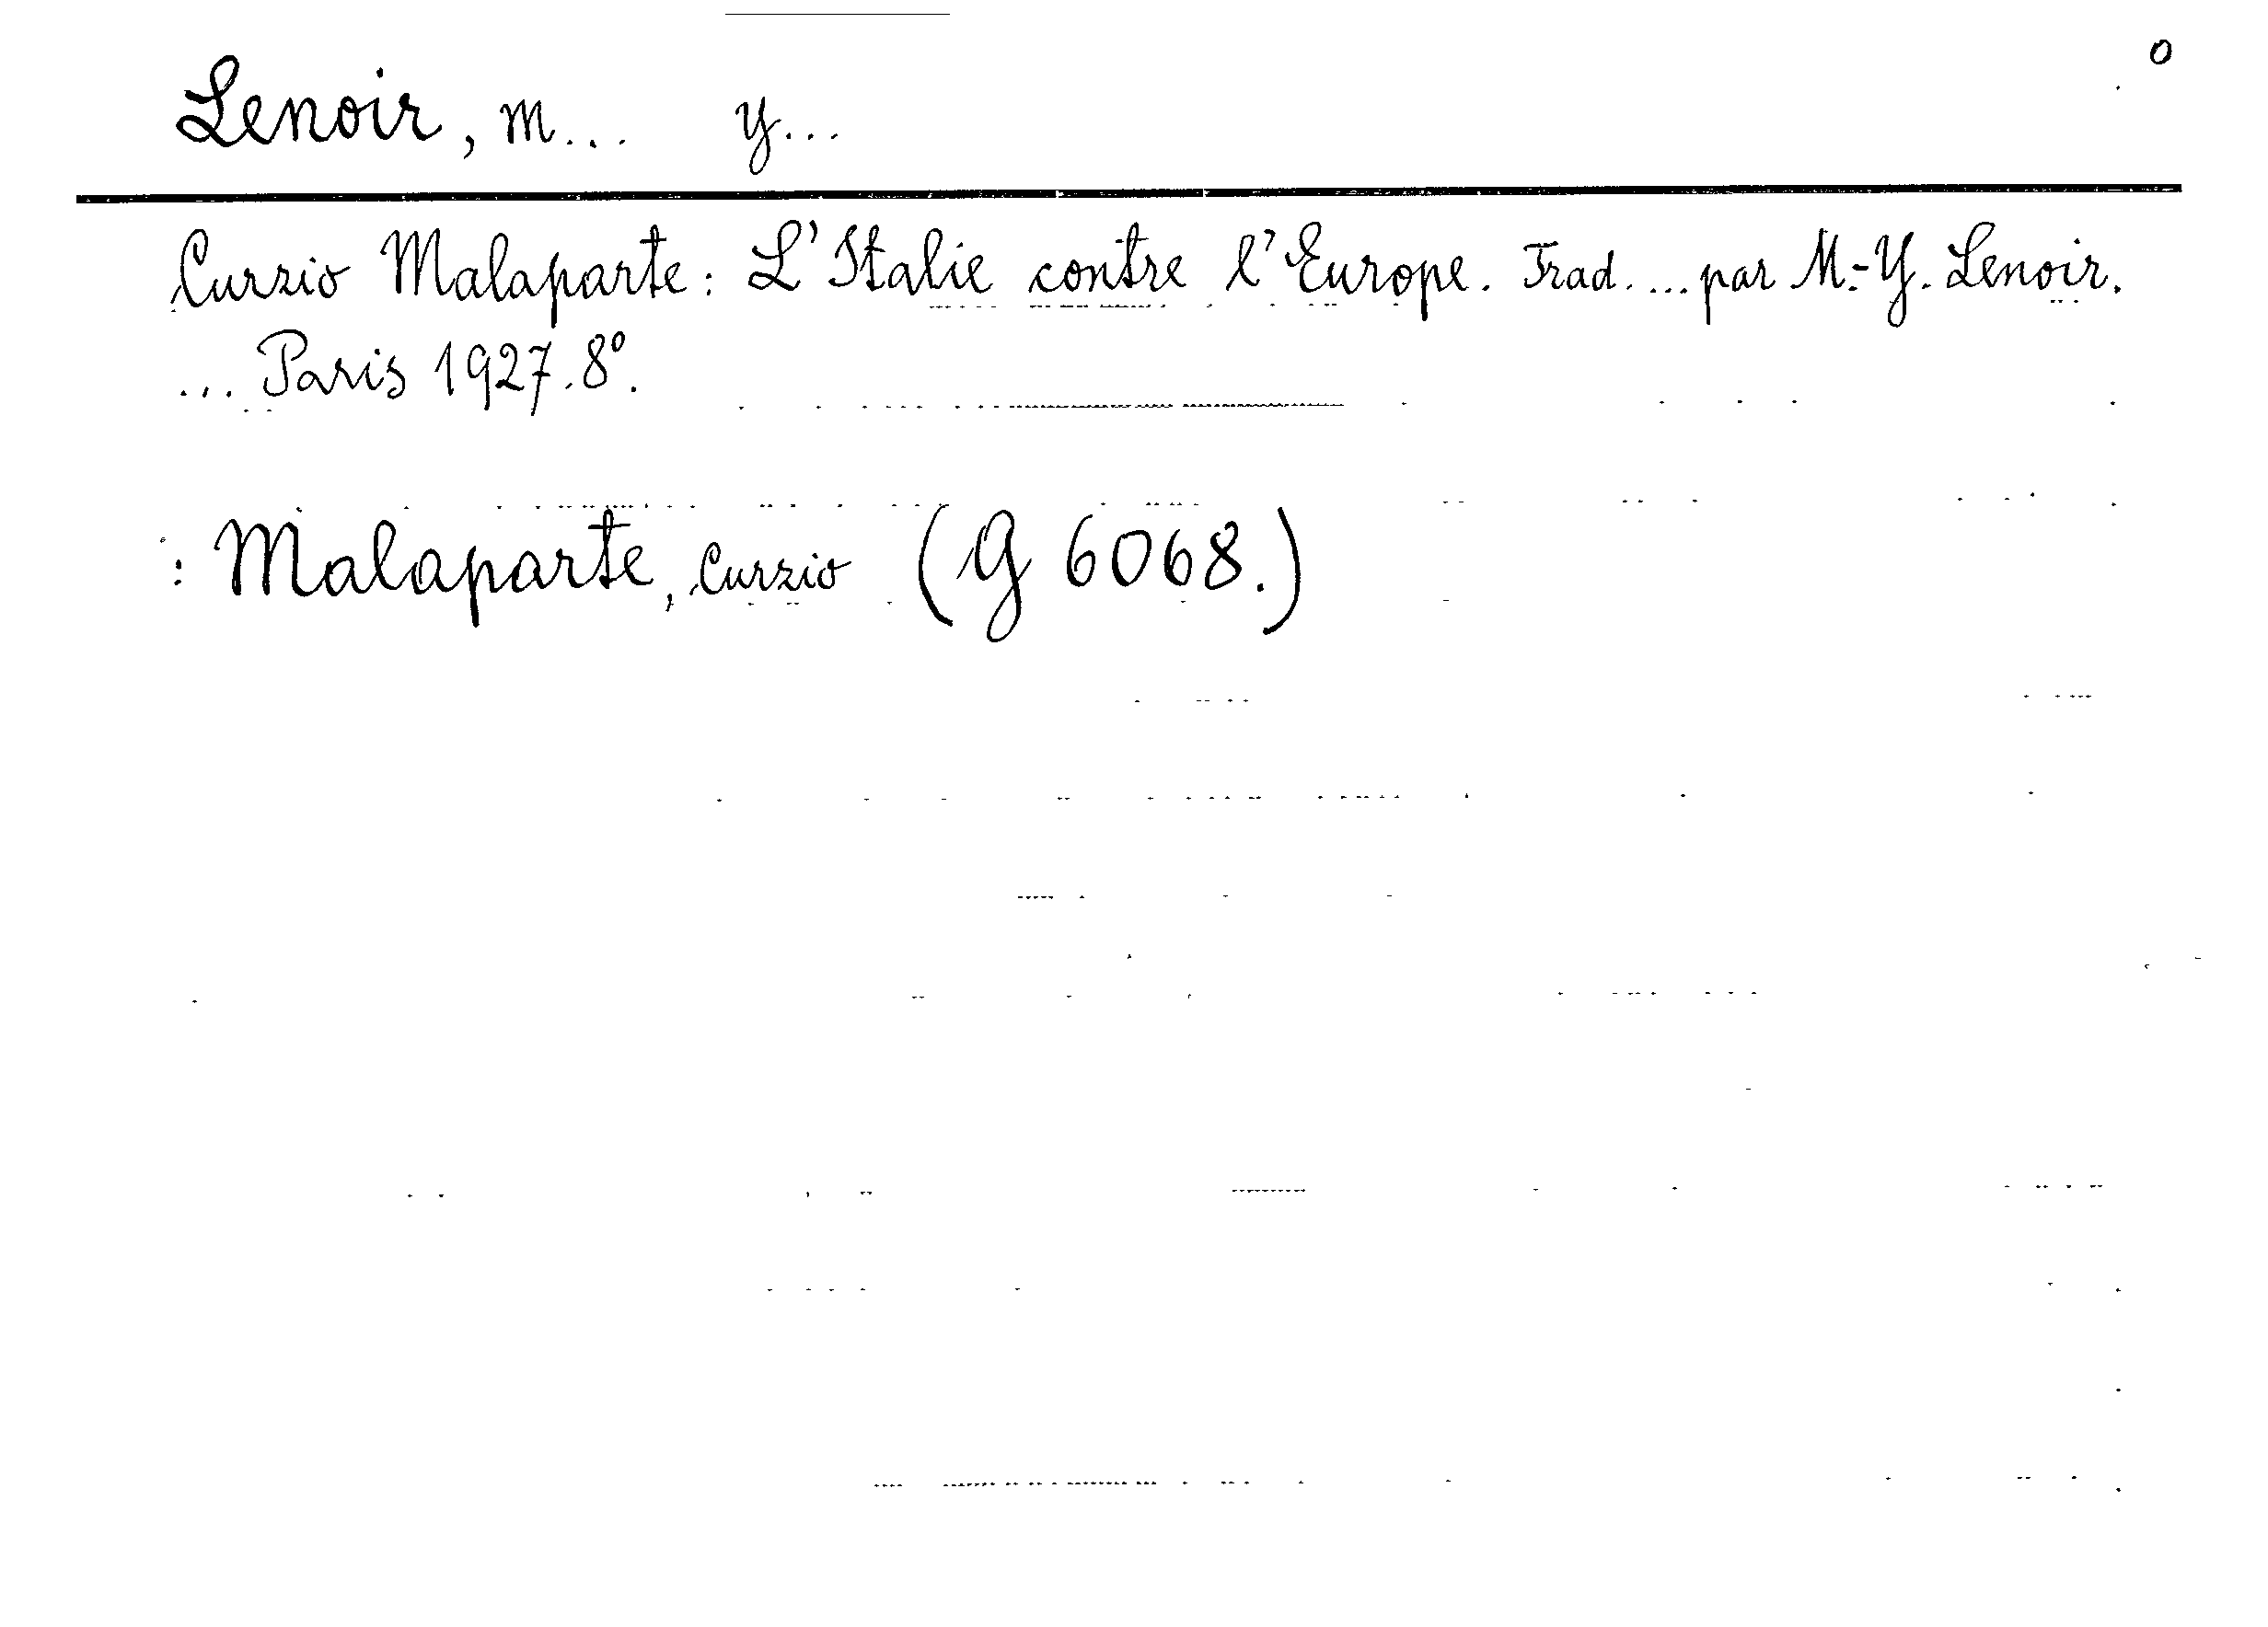 o
Lenoir, M... Y...
Curzio Malaparte: L'Italie contre l'Europe. Trad. ... par M.-Y. Lenoir.
... Paris 1927. 8°.
: Malaparte, Curzio (G 6068.)